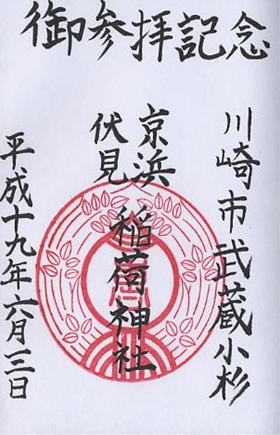 御参拝記念
川崎市武蔵小杉
京浜
伏見
稲荷神社
平成十九年六月三日